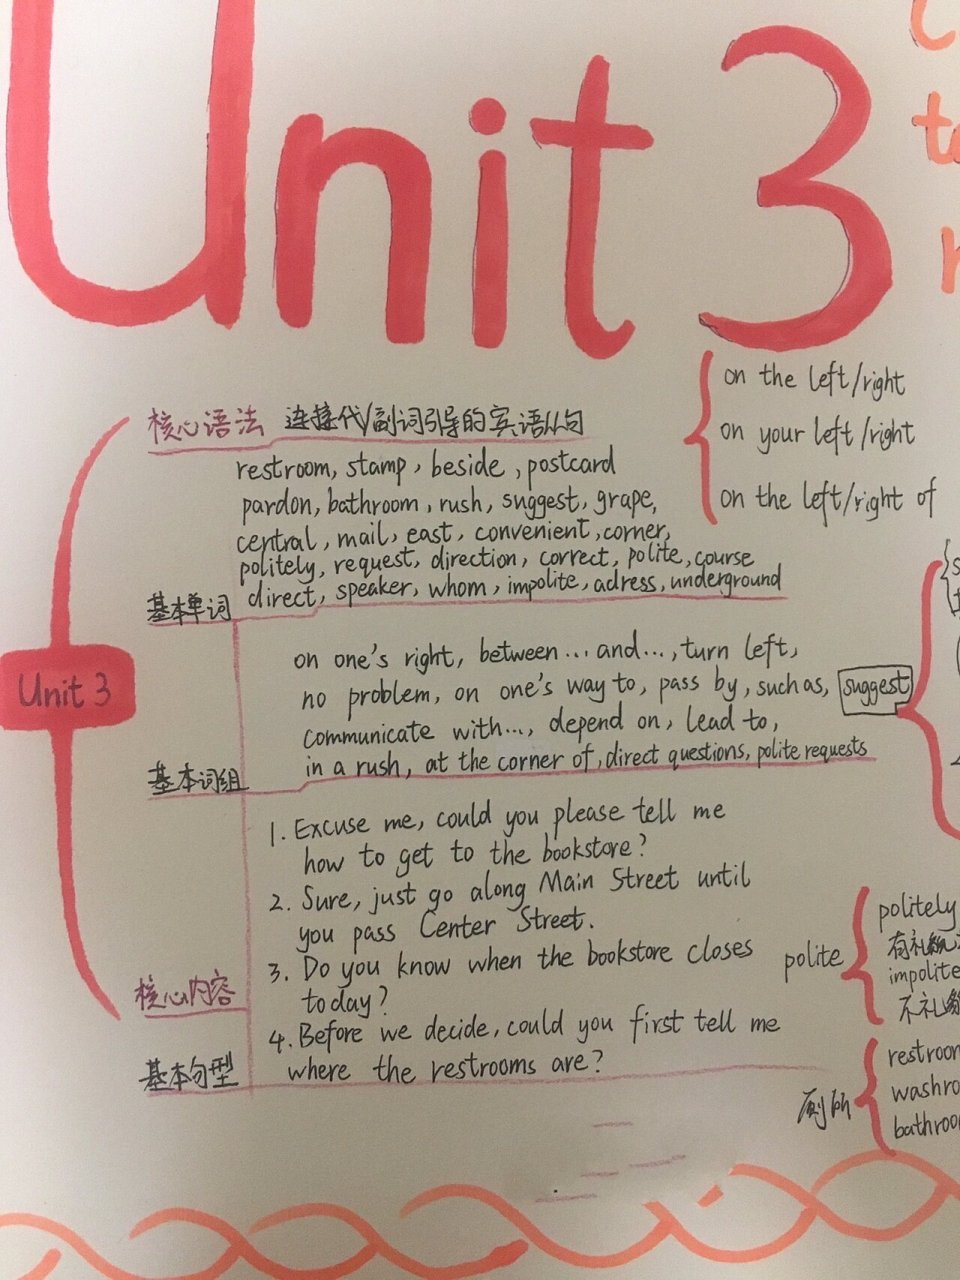 Unit 3
on the left/right
on your left/right
on the left/right of
核心语法 连接代/副词引导的宾语从句
restroom, stamp, beside, postcard
pardon, bathroom, rush, suggest, grape,
central, mail, east, convenient, corner,
politely, request, direction, correct, polite, course
direct, speaker, whom, impolite, adress, underground
基本单词
Unit 3
on one's right, between...and..., turn left,
no problem, on one's way to, pass by, such as,
suggest
communicate with..., depend on, lead to,
in a rush, at the corner of, direct questions, polite requests
基本词组
1. Excuse me, could you please tell me
how to get to the bookstore?
2. Sure, just go along Main Street until
you pass Center Street.
3. Do you know when the bookstore closes
today?
核心内容
4. Before we decide, could you first tell me
where the restrooms are?
基本句型
polite
politely
有礼貌
impolite
不礼貌
厕所
restroom
washro
bathroo